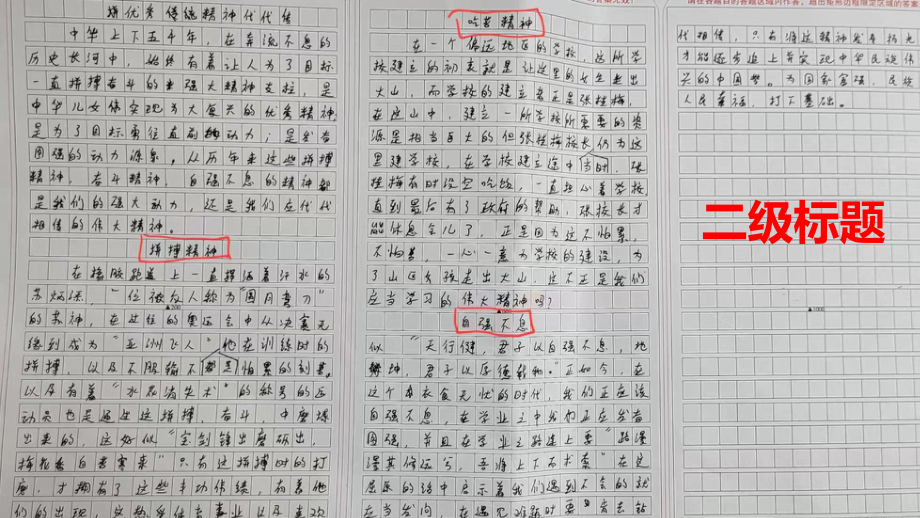 拼优秀传统精神代代传
中华上下五千年，在奔流不息的
历史长河中，始终有着让人为了目标
一直拼搏奋斗的强大精神支柱，是
中华儿女体实现伟大复兴的优秀精神，
是为了目标勇往直前动力；是发奋
图强的动力源泉。从历年来这些拼搏
精神，奋斗精神，自强不息的精神都
是我们的强大动力，还是我们应代代
相传的伟大精神。
拼搏精神
在橡胶跑道上一直挥洒着汗水的
苏炳添，一位被众人称为
的苏神，在过往的奥运会中从决赛无
缘到成为"亚洲飞人"他在训练时的
拼搏，以及不服输不怕累的刻
以及有着"水晶消失术"的称号的运
动员也是通过这拼搏，奋斗，中磨炼
出来的，这好似"宝剑锋出磨砺出，
梅花香自苦寒来"只有这拼搏时的打
磨，才拥有了这些丰功伟绩，有着他
们的出现，
吃苦精神
在一个偏远地区的学校，这所学
校建立的初衷就是让这里的女生走出
大山，而学校的建立者正是张桂梅，
在这山中，建立一所学校所需要的资
源是相当巨大的但张桂梅校长仍为这
里建学校，在学校建立途中当时，张
桂梅有时没空吃饭，一直担心着学校
直到最后有了政府的帮助，张校长才
能休息会儿了，正是因为这不怕累，
不怕苦，一心一意为学校的建设，为
了山区女孩走出大山，这不正是我们
应当学习的伟大精神吗？
自强不息
似"天行健，君子以自强不息，地
势坤，君子以厚德载物。"正如今，在
这个衣食无忧的时代，我们正应该
自强不息，在学业之中我们正应发奋
图强，并且在学业之路途上要"路漫
漫其修远兮，吾将上下而求索"在这
屈原的诗中启示着我们遇到不会的就
应当发问，在遇见难题时要去钻
请在各题目的答题区域内作答，超出矩形边框限定区域的答案
代相传，只有将这精神发扬拓光
才能逐步追上并实现中华民族伟大
兴的中国梦。为国家富强，民族
人民幸福，打下基础。
二级标题